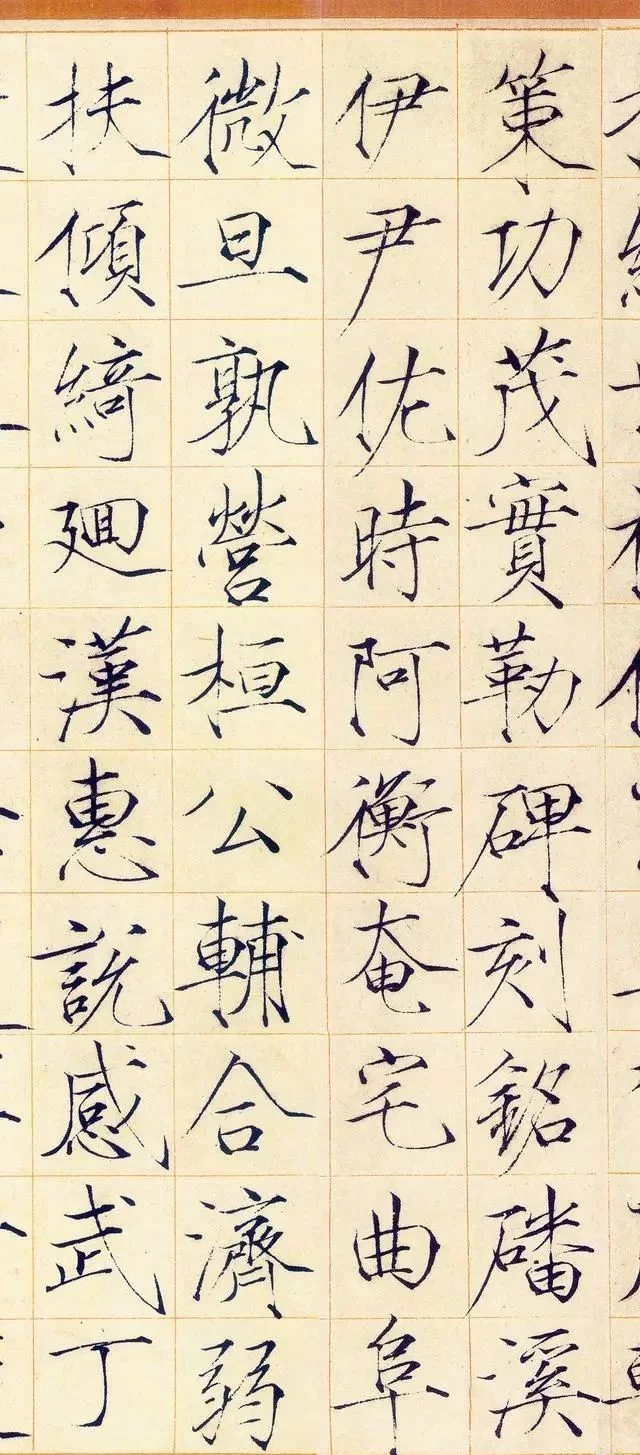 策功茂實勒碑刻銘磻溪
伊尹佐時阿衡奄宅曲阜
微旦孰營桓公輔合濟弱
扶傾綺廻漢惠說感武丁